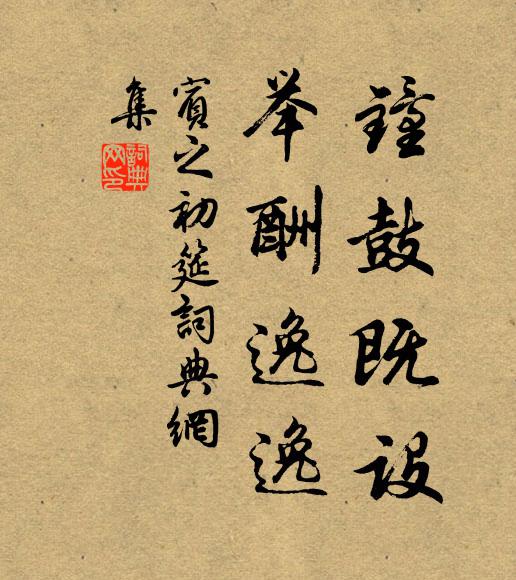 鐘鼓既設
举酬逸逸
賓之初筵詞典網
集
詞典
网印